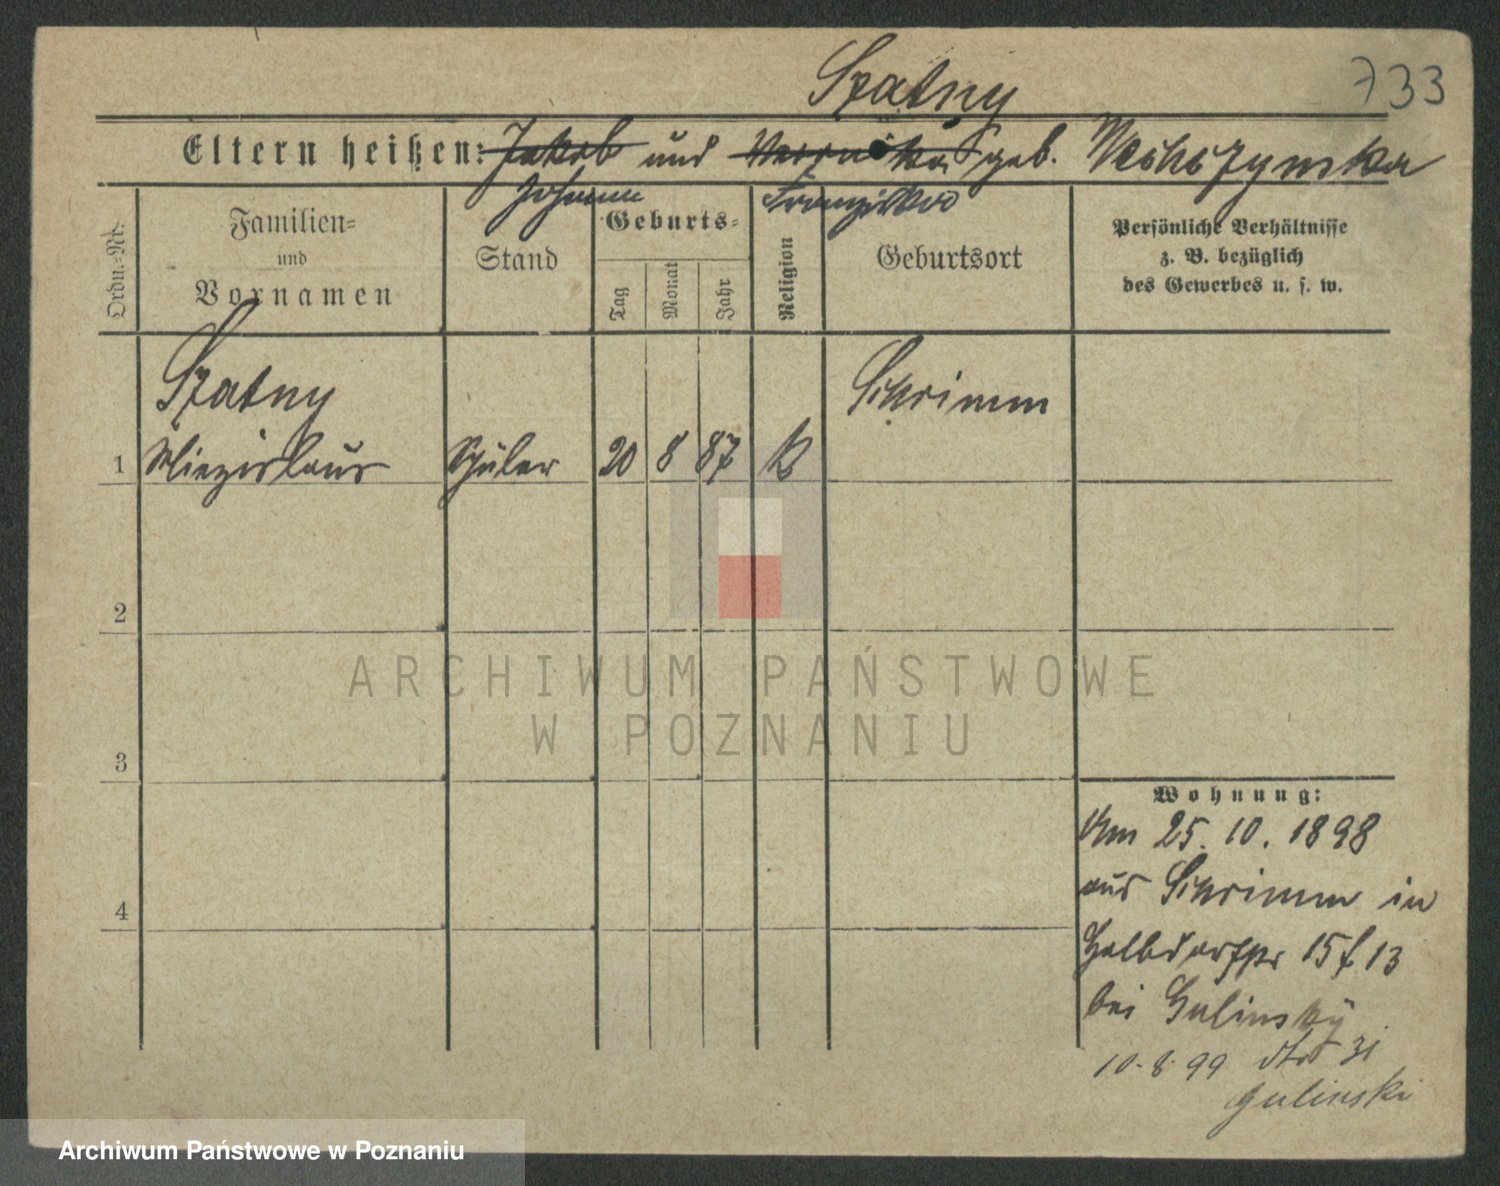 Szatny
733
Eltern heißen: Jakob und Veronika geb.
Johann Franziska
Ordn.-Nr.
Familien-
und
Vornamen
Stand
Geburts-
Tag
Monat
Jahr
Religion
Geburtsort
Persönliche Verhältnisse
z. B. bezüglich
des Gewerbes u. s. w.
Szatny
Schrimm
1 Miezislaus Schüler 20 8 87 K
2
3
4
Wohnung:
Am 25. 10. 1898
aus Schrimm in
Halbdorfstr 15 13
bei Gulinsky
10.8.99 31
Gulinski
ARCHIWUM PAŃSTWOWE
W POZNANIU
Archiwum Państwowe w Poznaniu